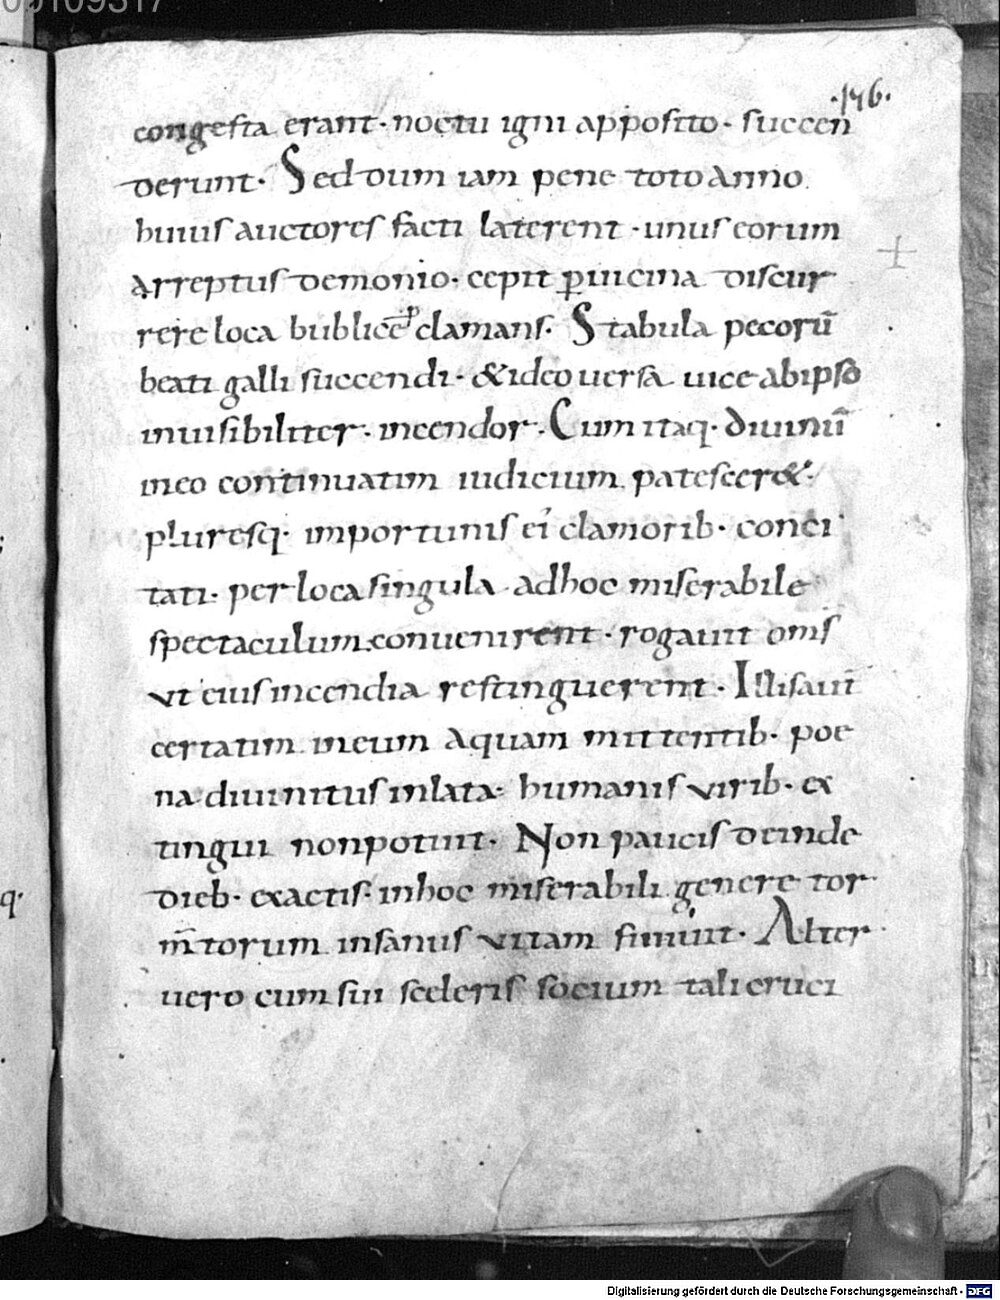 00109317
.176.
congesta erant· noctu igni apposito· succen
derunt· Sed dum iam pene toto anno
huius auctores facti laterent· unus eorum
arreptus demonio· cepit ꝑ uicina discur
rere loca bublice clamans· Stabula pecorū
beati galli succendi· & ideo uersa uice ab ipso
inuisibiliter· incendor· Cum itaq· diuinū
in eo continuatim iudicium patescer&·
pluresq· importunis ei clamorib· conci
tati· per loca singula ad hoc miserabile
spectaculum conuenirent· rogauit om̄s
ut eius incendia restinguerent· Illis aut̄
certatim in eum aquam mittentib· poe
na diuinitus inlata· humanis virib· ex
tingui non potuit· Non paucis deinde
dieb· exactis· in hoc miserabili genere tor
m̄torum insanus vitam finiuit· Alter
uero cum sui sceleris socium tali cruci
q·
Digitalisierung gefördert durch die Deutsche Forschungsgemeinschaft - DFG